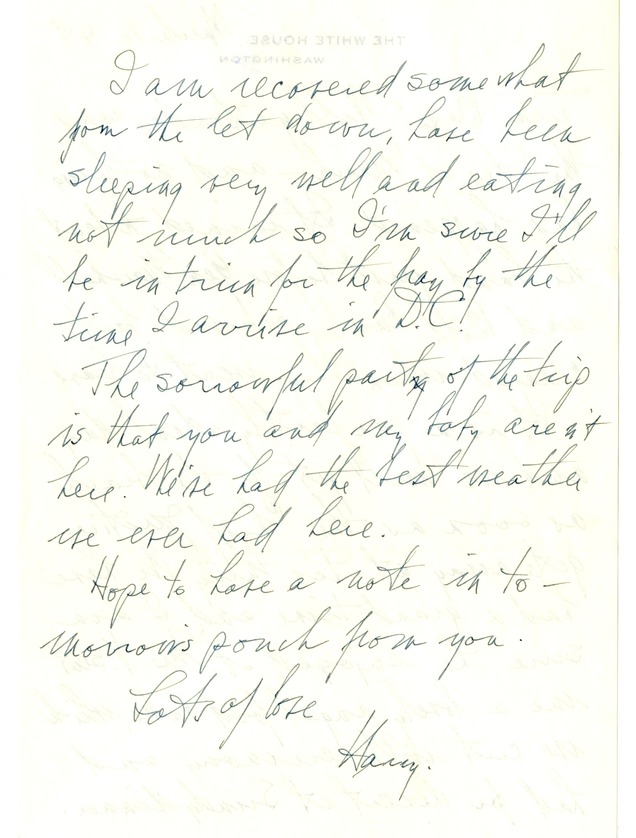 THE WHITE HOUSE
WASHINGTON
I am recovered somewhat
from the let down, have been
sleeping very well and eating
not much so I'm sure I'll
be in trim for the fray by the
time I arrive in D.C.
The sorrowful part of the trip
is that you and my baby aren't
here. We've had the best weather
we ever had here.
Hope to have a note in to-
morrow's pouch from you.
Lots of love
Harry.